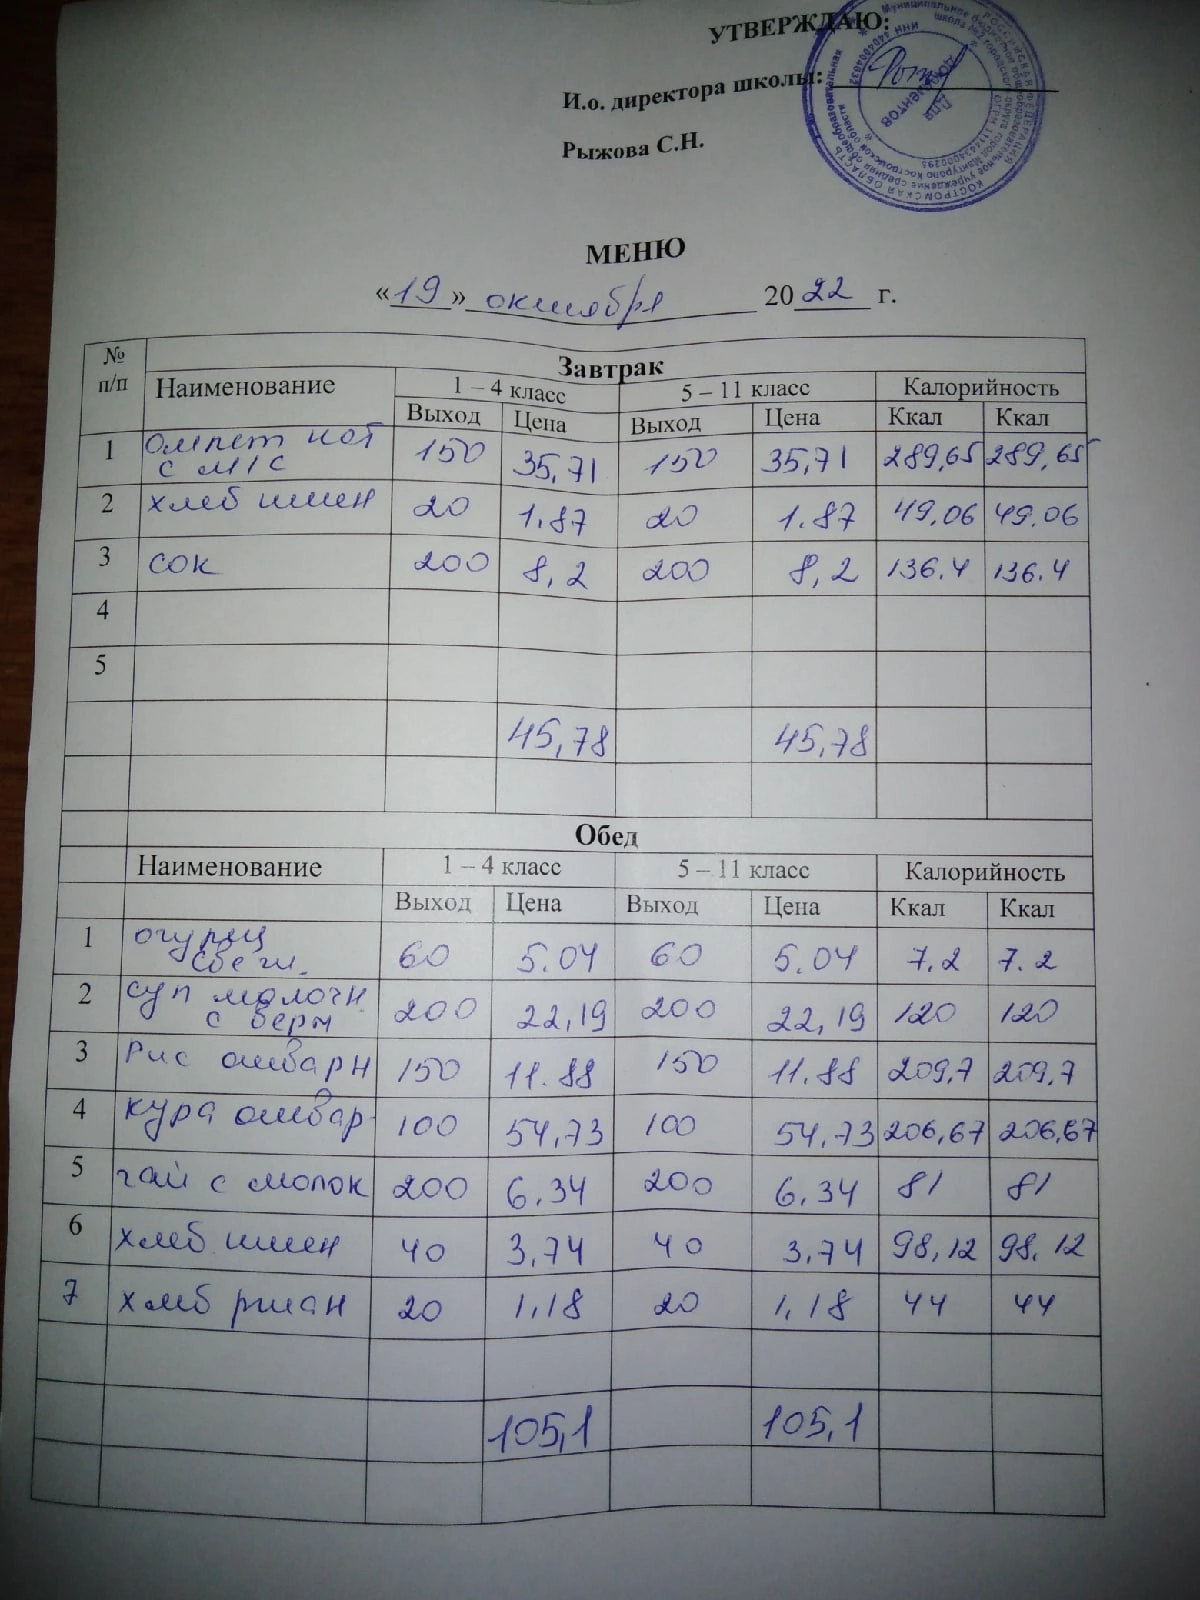 УТВЕРЖДАЮ:
И.о. директора школы:
Рыжова С.Н.
Для
документов
МЕНЮ
«19» октября 2022 г.
№ п/п Завтрак
Наименование 1 – 4 класс 5 – 11 класс Калорийность
Выход Цена Выход Цена Ккал Ккал
1 омлет нат с м/с 150 35,71 150 35,71 289,65 289,65
2 хлеб пшен 20 1.87 20 1.87 49,06 49.06
3 сок 200 8,2 200 8,2 136.4 136.4
4
5
45,78 45,78
Обед
Наименование 1 – 4 класс 5 – 11 класс Калорийность
Выход Цена Выход Цена Ккал Ккал
1 огурец свеж. 60 5.04 60 5.04 7.2 7.2
2 суп молочн с верм 200 22,19 200 22,19 120 120
3 Рис отварн 150 11.88 150 11.88 209,7 209,7
4 кура отвар 100 54,73 100 54,73 206,67 206,67
5 чай с молок 200 6.34 200 6.34 81 81
6 хлеб пшен 40 3,74 40 3,74 98,12 98.12
7 хлеб ржан 20 1,18 20 1,18 44 44
105,1 105,1